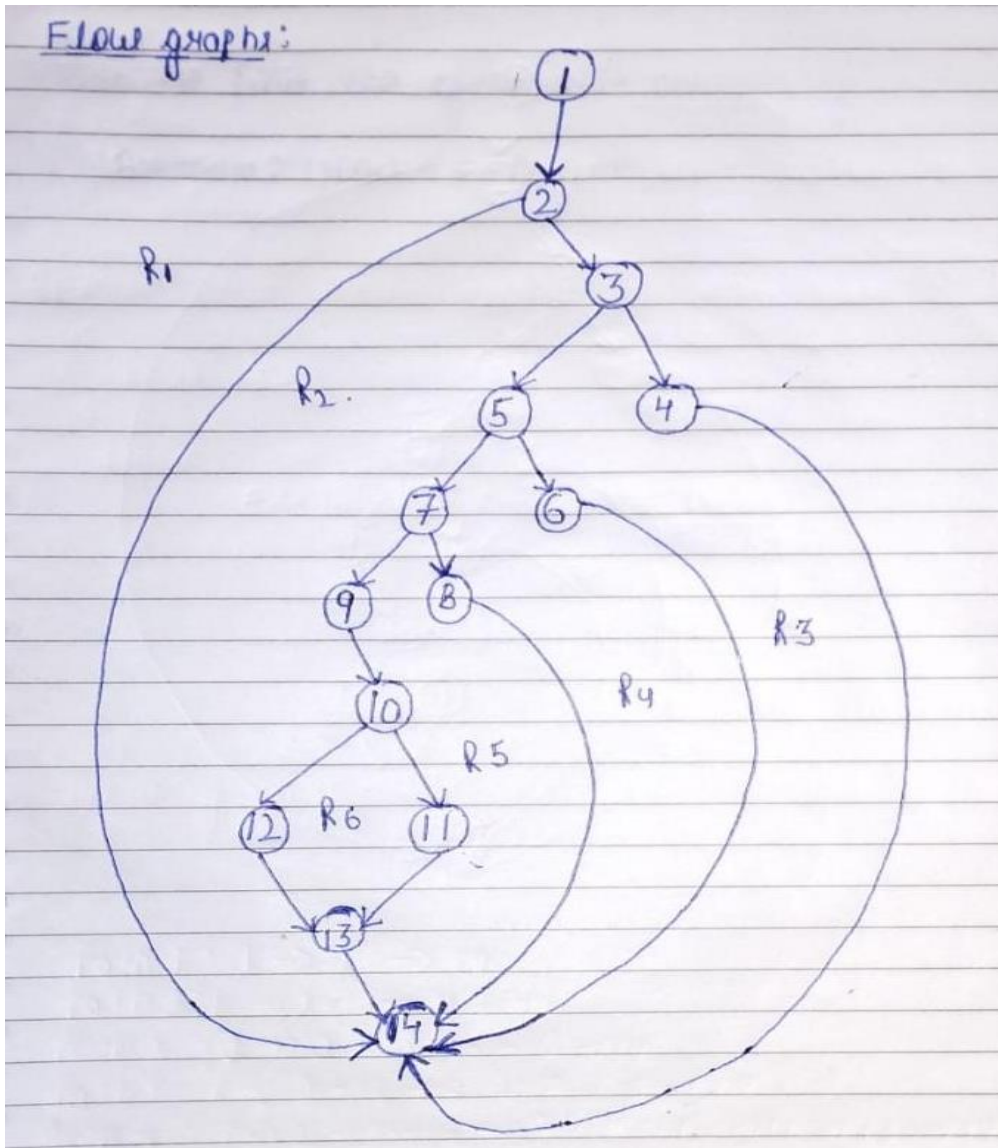 Flow graphs:
1
2
R1
3
R2.
5
4
7
6
9
8
R3
R4
10
R5
12
R6
11
13
14